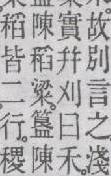 故別言之淺
實幷刈曰禾
陳稻粱簋陳
稻皆二行稷